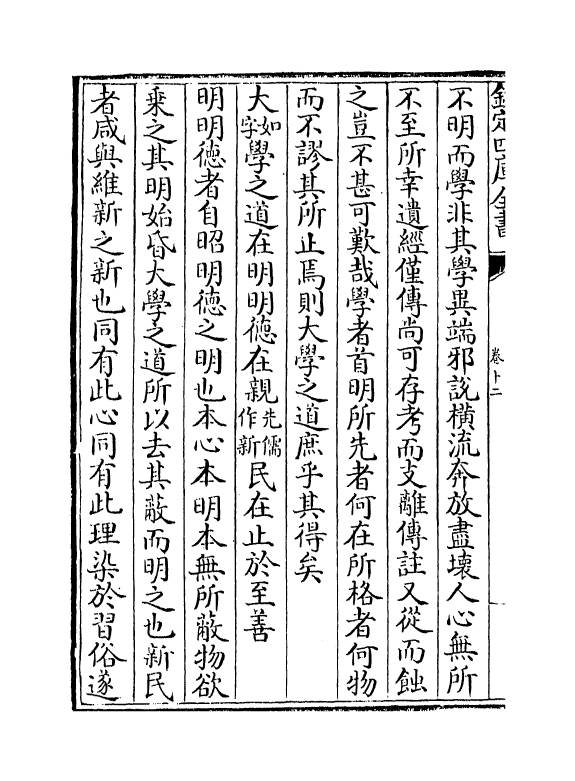 欽定四庫全書
卷十二
不明而學非其學異端邪說橫流奔放盡壞人心無所
不至所幸遺經僅傳尚可存考而支離傳註又從而蝕
之豈不甚可歎哉學者首明所先者何在所格者何物
而不謬其所止焉則大學之道庶乎其得矣
大如字學之道在明明德在親先儒作新民在止於至善
明明德者自昭明德之明也本心本明本無所蔽物欲
乗之其明始昏大學之道所以去其蔽而明之也新民
者咸與維新之新也同有此心同有此理染於習俗遂